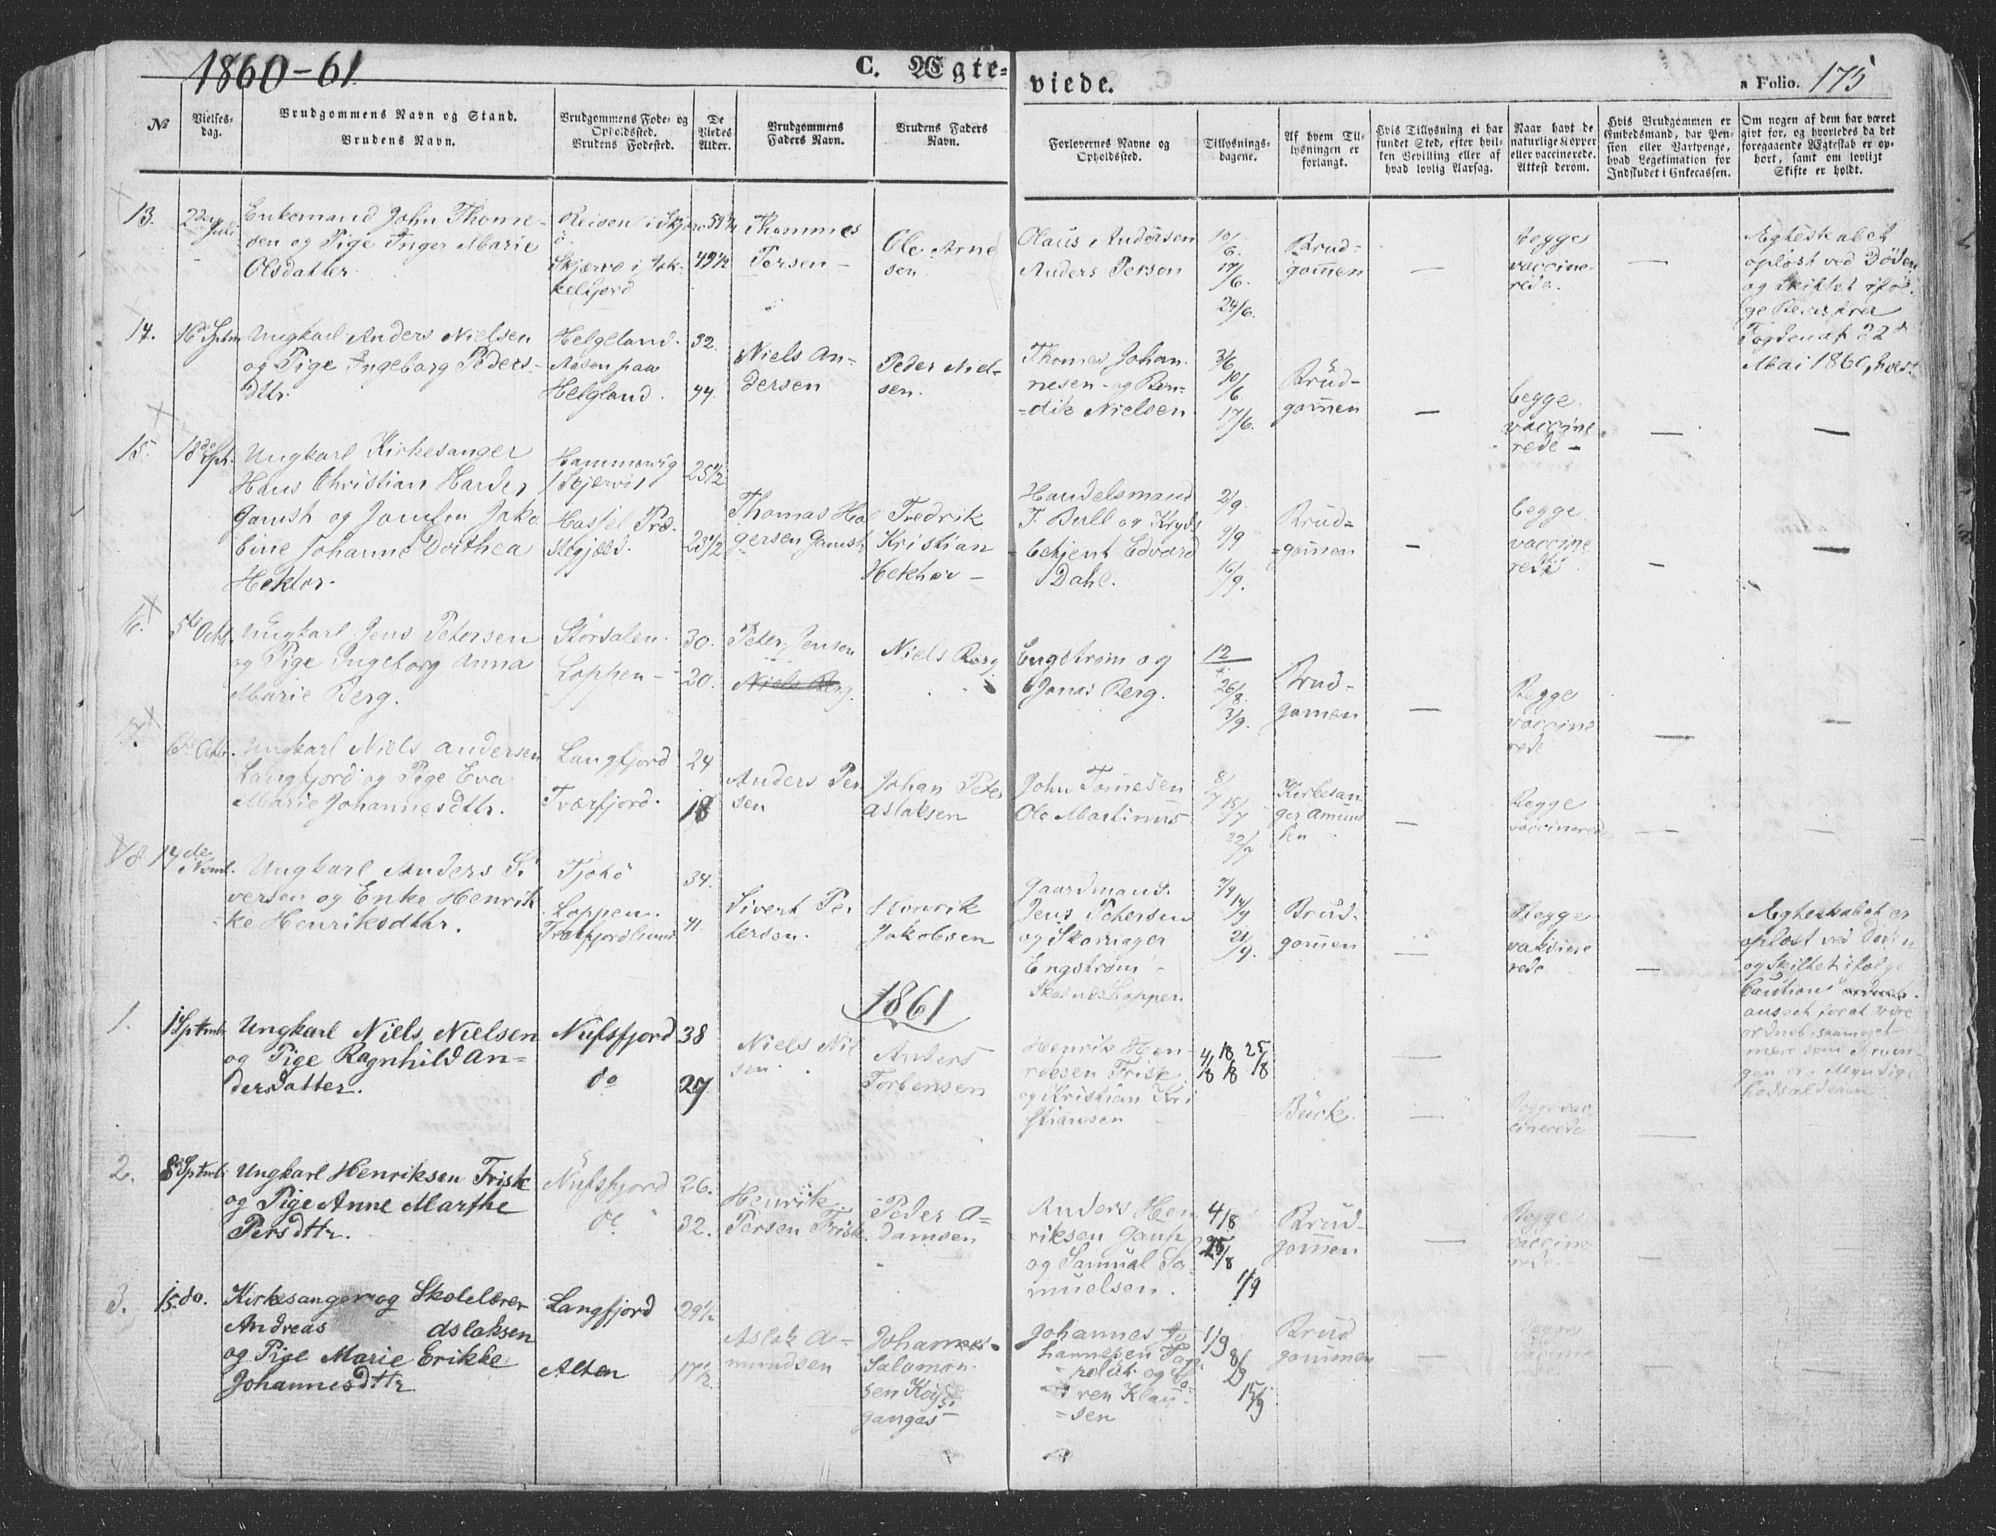 1860-61
C. Ægte-
viede.
a Folio. 175
No
Vielses-
dag.
Brudgommens Navn og Stand.
Brudens Navn.
Brudgommens Føde- og
Opholdssted.
Brudens Fødested.
De
Viedes
Alder.
Brudgommens
Faders Navn.
Brudens Faders
Navn.
Forlovernes Navne og
Opholdssted.
Tillysnings-
dagene.
Af hvem Til-
lysningen er
forlangt.
Hvis Tillysning ei har
fundet Sted, efter hvil-
ken Bevilling eller af
hvad lovlig Aarsag.
Naar havt de
naturlige Kopper
eller vaccinerede.
Attest derom.
Hvis Brudgommen er
Embedsmand, har Pen-
sion eller Vartpenge,
hvad Legitimation for
Indskudet i Enkecassen.
Om nogen af dem har været
givt for, og hvorledes da det
foregaaende Ægteskab er op-
hørt, samt om lovligt
Skifte er holdt.
13.
Juli
Enkemand John Thome-
sen og Pige Inger Marie
Olsdatter
Reisen i Skjerv-
ø
Skjervø i Jøk-
kelfjord
49 1/2
Thommes
Persen -
Ole Arne
sen.
Olaus Andersen
Anders Person
10/6.
17/6.
24/6.
Brud-
gommen
begge
vaccine-
rede.
Ægteskabet
opløst ved Døden
og skiftet iføl-
ge
Fogden af 22
Mai 1860,
14.
16 Sptm
Ungkarl Anders Nielsen
og Pige Ingeborg Peders-
dttr.
Helgeland.
Aasen paa
Helgland.
32.
44.
Niels An-
dersen
Peder Niel-
sen.
Thomes Johan-
nesen og Ben-
dik Nielsen
3/6
10/6
17/6.
Brud-
gommen
begge
vaccine
rede -
15.
18de Spt.
Ungkarl Kirkesanger
Hans Christian Harder
Gamst og Jomfru Jako
bine Johanne Dorthea
Hektor.
Hammervig
/ Skjervø /
Hasfel Præ-
stegjæld.
25 1/2
23 1/2
Thomas Hol
gersen Gamst
Fredrik
Kristian
Hekhor -
Handelsmand
F. Bull og
Edvard
Dahl.
2/9.
9/9
16/9.
Brud-
gommen
begge
vaccine
rede
16.
5te Octb.
Ungkarl Jens Petersen
og Pige Ingeborg Anna
Marie Berg.
Storsalen.
Loppen -
30.
20.
Peter Jensen
Niels Berg.
Niels Berg
Engstrøm og
Jonas Berg.
12
26/8
3/9.
Brud-
gomen
Begge
vaccine
rede
17.
6te Octb.
Ungkarl Niels Andersen
Langfjord og Pige Eva
Marie Johannesdttr.
Langfjord
Tværfjord.
24
18
Anders Per
sen
Johan Peter
Aslaksen
John Tomesen
Ole Martinus
8/7
15/7
22/7
Kirkesan-
ger Amund
sen
Begge
vaccinerede
18
14de Nvmb.
Ungkarl Anders Si
versen og Enke Henrik
ke Henriksdttr.
Tjokø
Loppen.
34.
41.
Sivert Pe
tersen.
Henrik
Jakobsen
Gaardmand
Jens Petersen
og Skomager
Engstrøm -
7/9
14/9
21/9.
Brud-
gommen
Begge
vaksine
rede
Ægteskabet er
opløst ved Døden
og skiftet ifølge
1861
1.
1 Sptmb
Ungkarl Niels Nielsen
og Pige Ragnhild An-
dersdatter.
Nufsfjord
do
38
27
Niels Nil
sen.
Anders
Torbensen
Henrik Hen-
riksen Frisk
og Kristian Kri
stiansen
4/8 18/8 25/8
Buck.
Begge vac
cinerede
2.
8 Sptmb
Ungkarl Henriksen Frisk
og Pige Anne Marthe
Persdttr.
Nufsfjord
do
26.
32.
Henrik
Persen Frisk
Peder A-
damsen
Anders Hen
riksen Gaup
og Samuel Sa-
muelsen.
4/8
25/8
1/9
Brud-
gommen
Begge
vaccine
rede
3.
15. do.
Kirkesanger og Skolelærer
Andreas Aslaksen
og Pige Marie Erikke
Johannesdttr
Langfjord
Alten
29 1/2
17 1/2
Aslak A-
mundsen
Johannes
Salamon-
sen
Johannes Jo
hannesen
og So-
ren Klau-
sen
1/9
8/9
15/9
Brud
gommen
Begge
vaccine